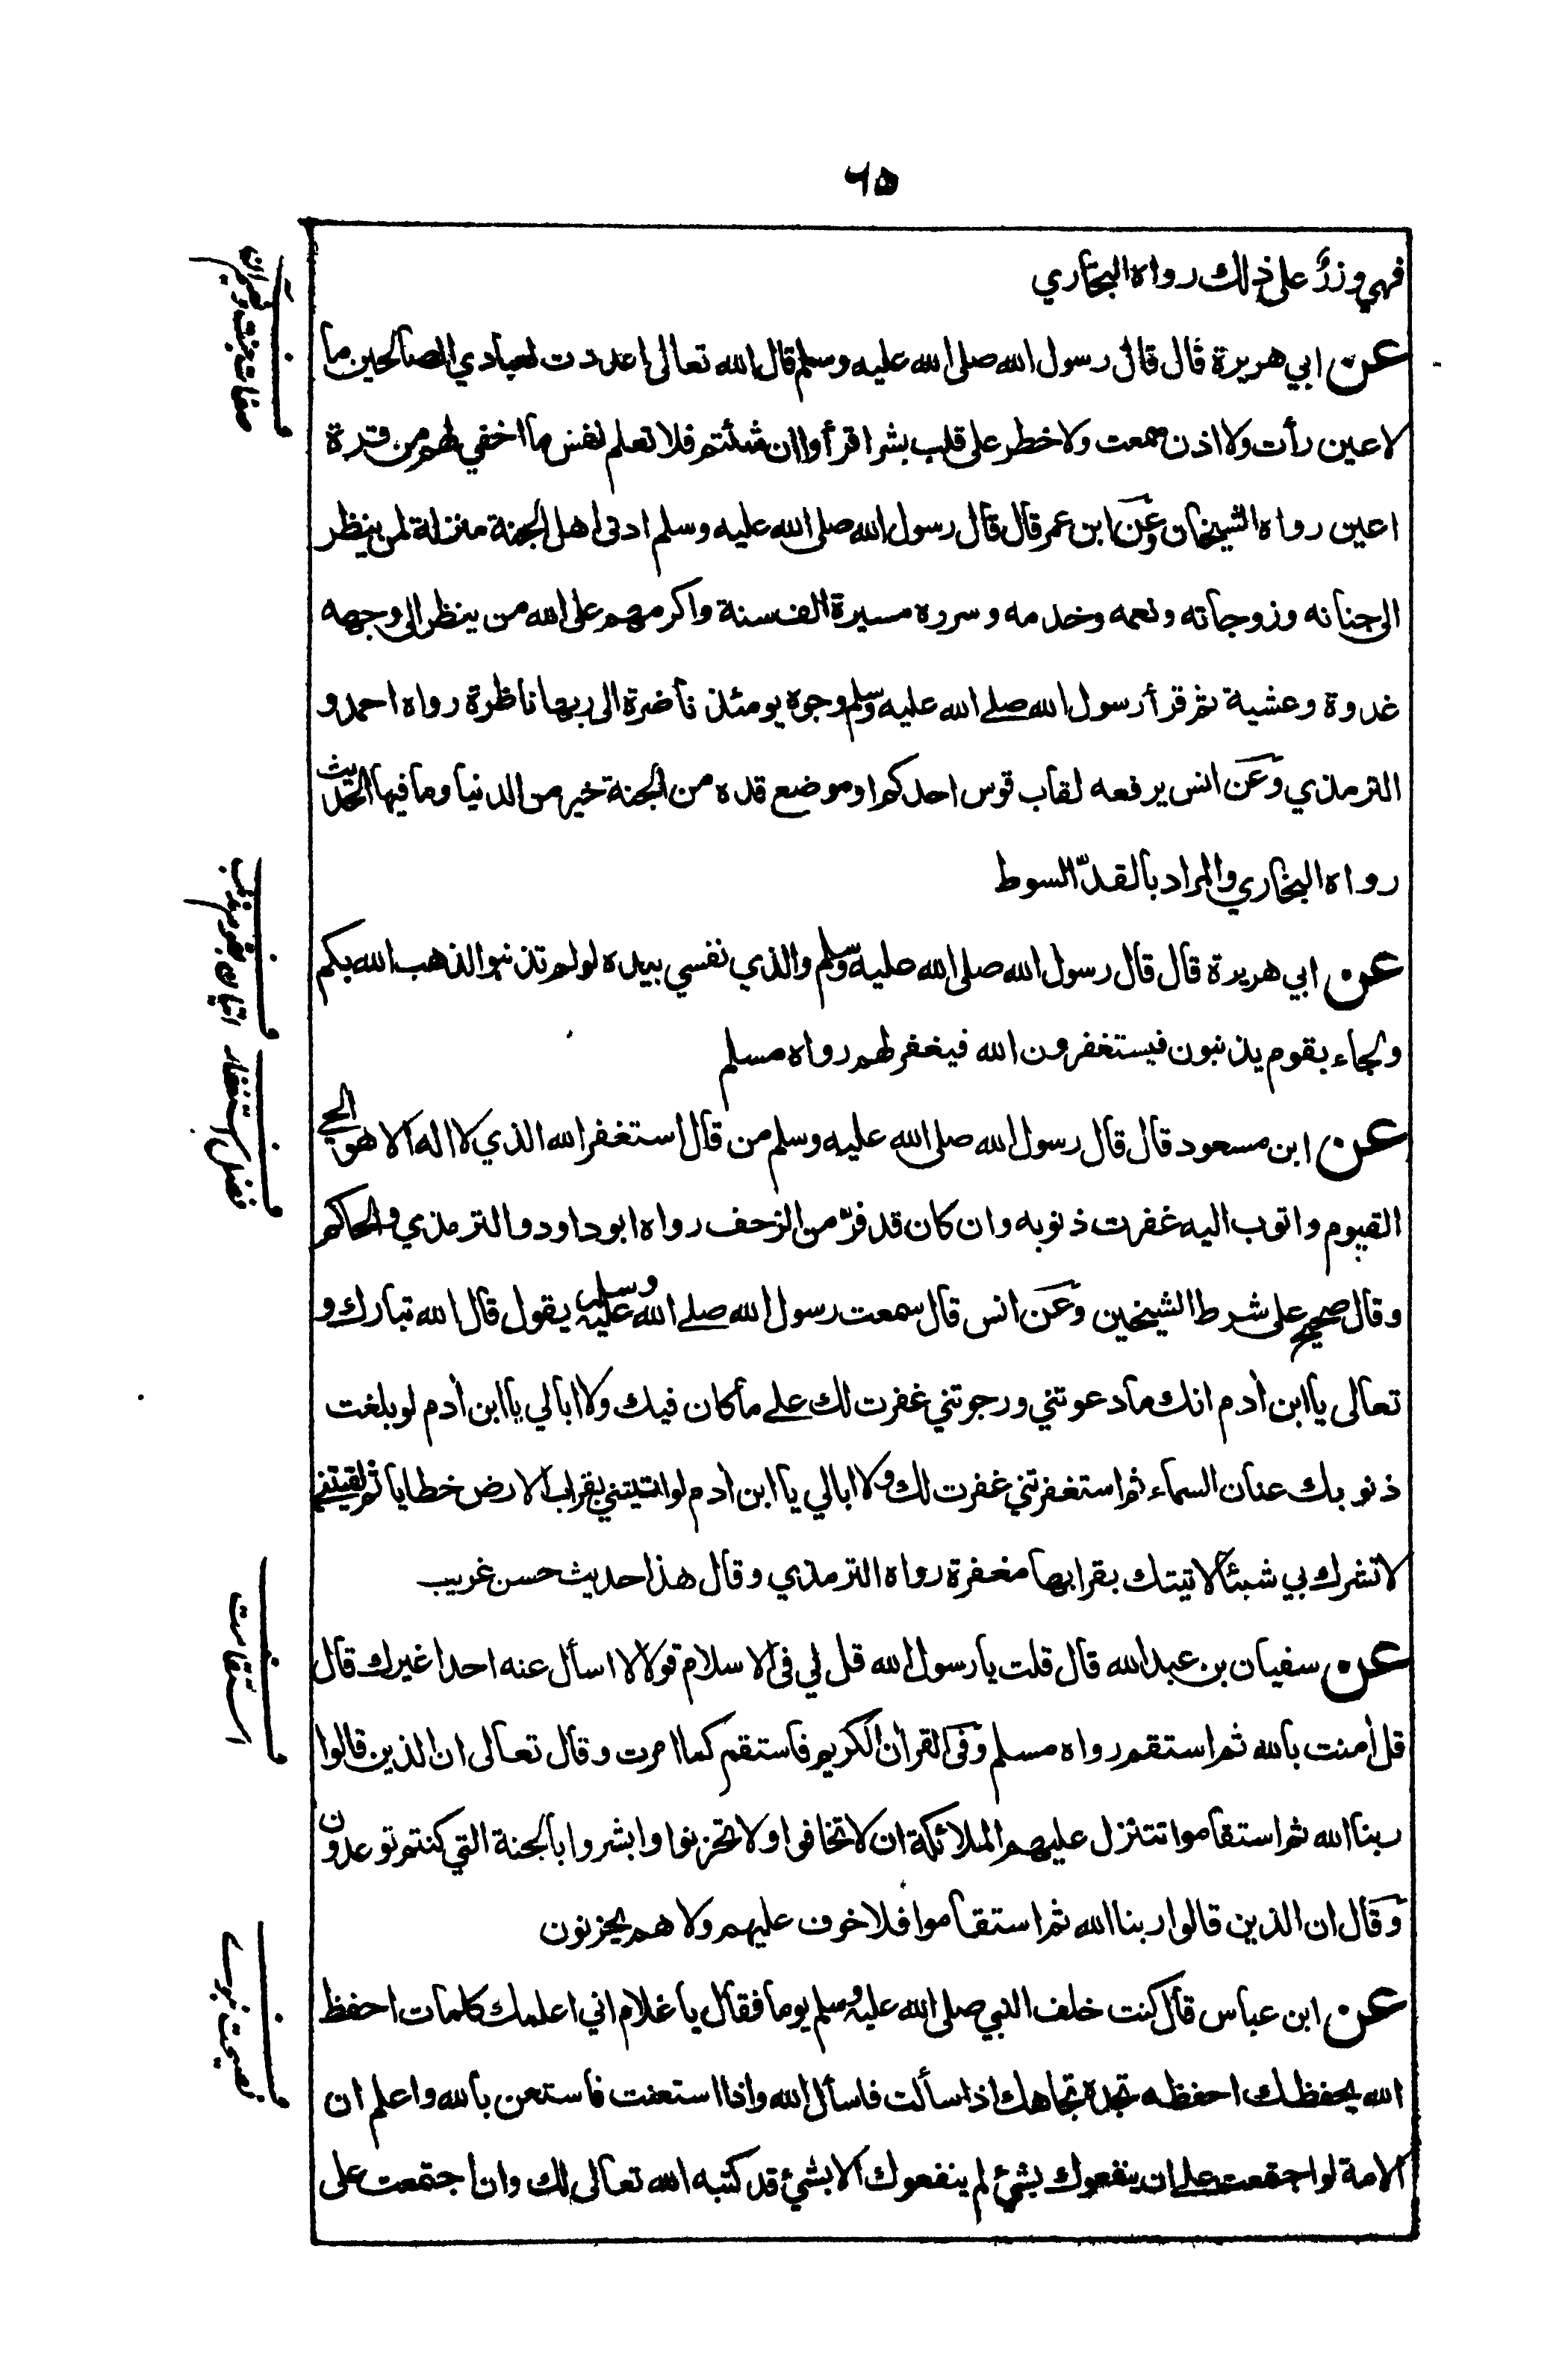 ٦٥
فهي وزرٌ على ذلك رواه البخاري
عن ابي هريرة قال قال رسول الله صلى الله عليه وسلم قال الله تعالى اعددت لعبادي الصالحين ما
لاعين رأت ولا اذن سمعت ولا خطر على قلب بشر اقرأوا ان شئتم فلا تعلم نفس ما اخفي لهم من قرة
اعين رواه الشيخان وعن ابن عمر قال قال رسول الله صلى الله عليه وسلم ادنى اهل الجنة منزلة لمن ينظر
الى جنانه وزوجاته ونعمه وخدمه وسرره مسيرة الف سنة واكرمهم على الله من ينظر الى وجهه
غدوة وعشية ثم قرأ رسول الله صلے الله عليه وسلم وجوه يومئذ ناضرة الى ربها ناظرة رواه احمد و
الترمذي وعن انس يرفعه لقاب قوس احدكم او موضع قده من الجنة خير من الدنيا وما فيها الحديث
رواه البخاري والمراد بالقدّ السوط
عن ابي هريرة قال قال رسول الله صلى الله عليه وسلم والذي نفسي بيده لو لم تذنبوا لذهب الله بكم
ولجاء بقوم يذنبون فيستغفرون الله فيغفر لهم رواه مسلم
عن ابن مسعود قال قال رسول الله صلى الله عليه وسلم من قال استغفر الله الذي لا اله الا هو الحي
القيوم واتوب اليه غفرت ذنوبه وان كان قد فرّ من الزحف رواه ابو داود والترمذي والحاكم
وقال صحيح على شرط الشيخين وعن انس قال سمعت رسول الله صلے الله عليه وسلم يقول قال الله تبارك و
تعالى يا ابن أدم انك ما دعوتني ورجوتني غفرت لك علے ما كان فيك ولا ابالي يا ابن أدم لو بلغت
ذنوبك عنان السماء ثم استغفرتني غفرت لك ولا ابالي يا ابن أدم لو اتيتني بقراب الارض خطايا ثم لقيتني
لا تشرك بي شيئا لاتيتك بقرابها مغفرة رواه الترمذي وقال هذا حديث حسن غريب
عن سفيان بن عبد الله قال قلت يا رسول الله قل لي في الاسلام قولا لا اسأل عنه احدا غيرك قال
قل أمنت بالله ثم استقم رواه مسلم وفي القرأن الكريم فاستقم كما امرت وقال تعالى ان الذين قالوا
ربنا الله ثم استقاموا تتنزل عليهم الملائكة ان لا تخافوا ولا تحزنوا وابشروا بالجنة التي كنتم توعدون
وقال ان الذين قالوا ربنا الله ثم استقاموا فلا خوف عليهم ولا هم يحزنون
عن ابن عباس قال كنت خلف النبي صلى الله عليه وسلم يوما فقال يا غلام اني اعلمك كلمات احفظ
الله يحفظك احفظه تجده تجاهك اذا سألت فاسأل الله واذا استعنت فاستعن بالله واعلم ان
الامة لو اجتمعت علے ان ينفعوك بشئ لم ينفعوك الا بشئ قد كتبه الله تعالى لك وان اجتمعت على
صفات جنت
فضل استغفار
استقامت
نصيحت نبوے